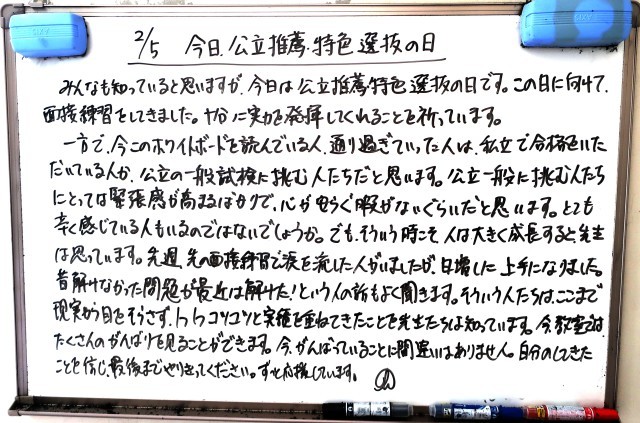 2/5 今日、公立推薦・特色選抜の日
みんなも知っていると思いますが、今日は公立推薦・特色選抜の日です。この日に向けて、
面接練習をしてきました。十分に実力を発揮してくれることを祈っています。
一方で、今このホワイトボードを読んでいる人、通り過ぎていった人は、私立で合格をいた
だいている人か、公立の一般試験に挑む人たちだと思います。公立一般に挑む人たち
にとっては緊張感が高まるばかりで、心が安らぐ暇がないぐらいだと思います。とても
辛く感じている人もいるのではないでしょうか。でも、そういう時こそ人は大きく成長すると先生
は思っています。先週、先の面接練習で涙を流した人がいましたが、日増しに上手になりました。
昔解けなかった問題が最近は解けた！という人の話もよく聞きます。そういう人たちは、ここまで
現実から目をそらさず、コツコツと実績を重ねてきたことを先生たちは知っています。今、教室では、
たくさんのがんばりを見ることができます。今、がんばっていることに間違いはありません。自分のしてきた
ことを信じ、最後までやりきってください。ずっと応援しています。